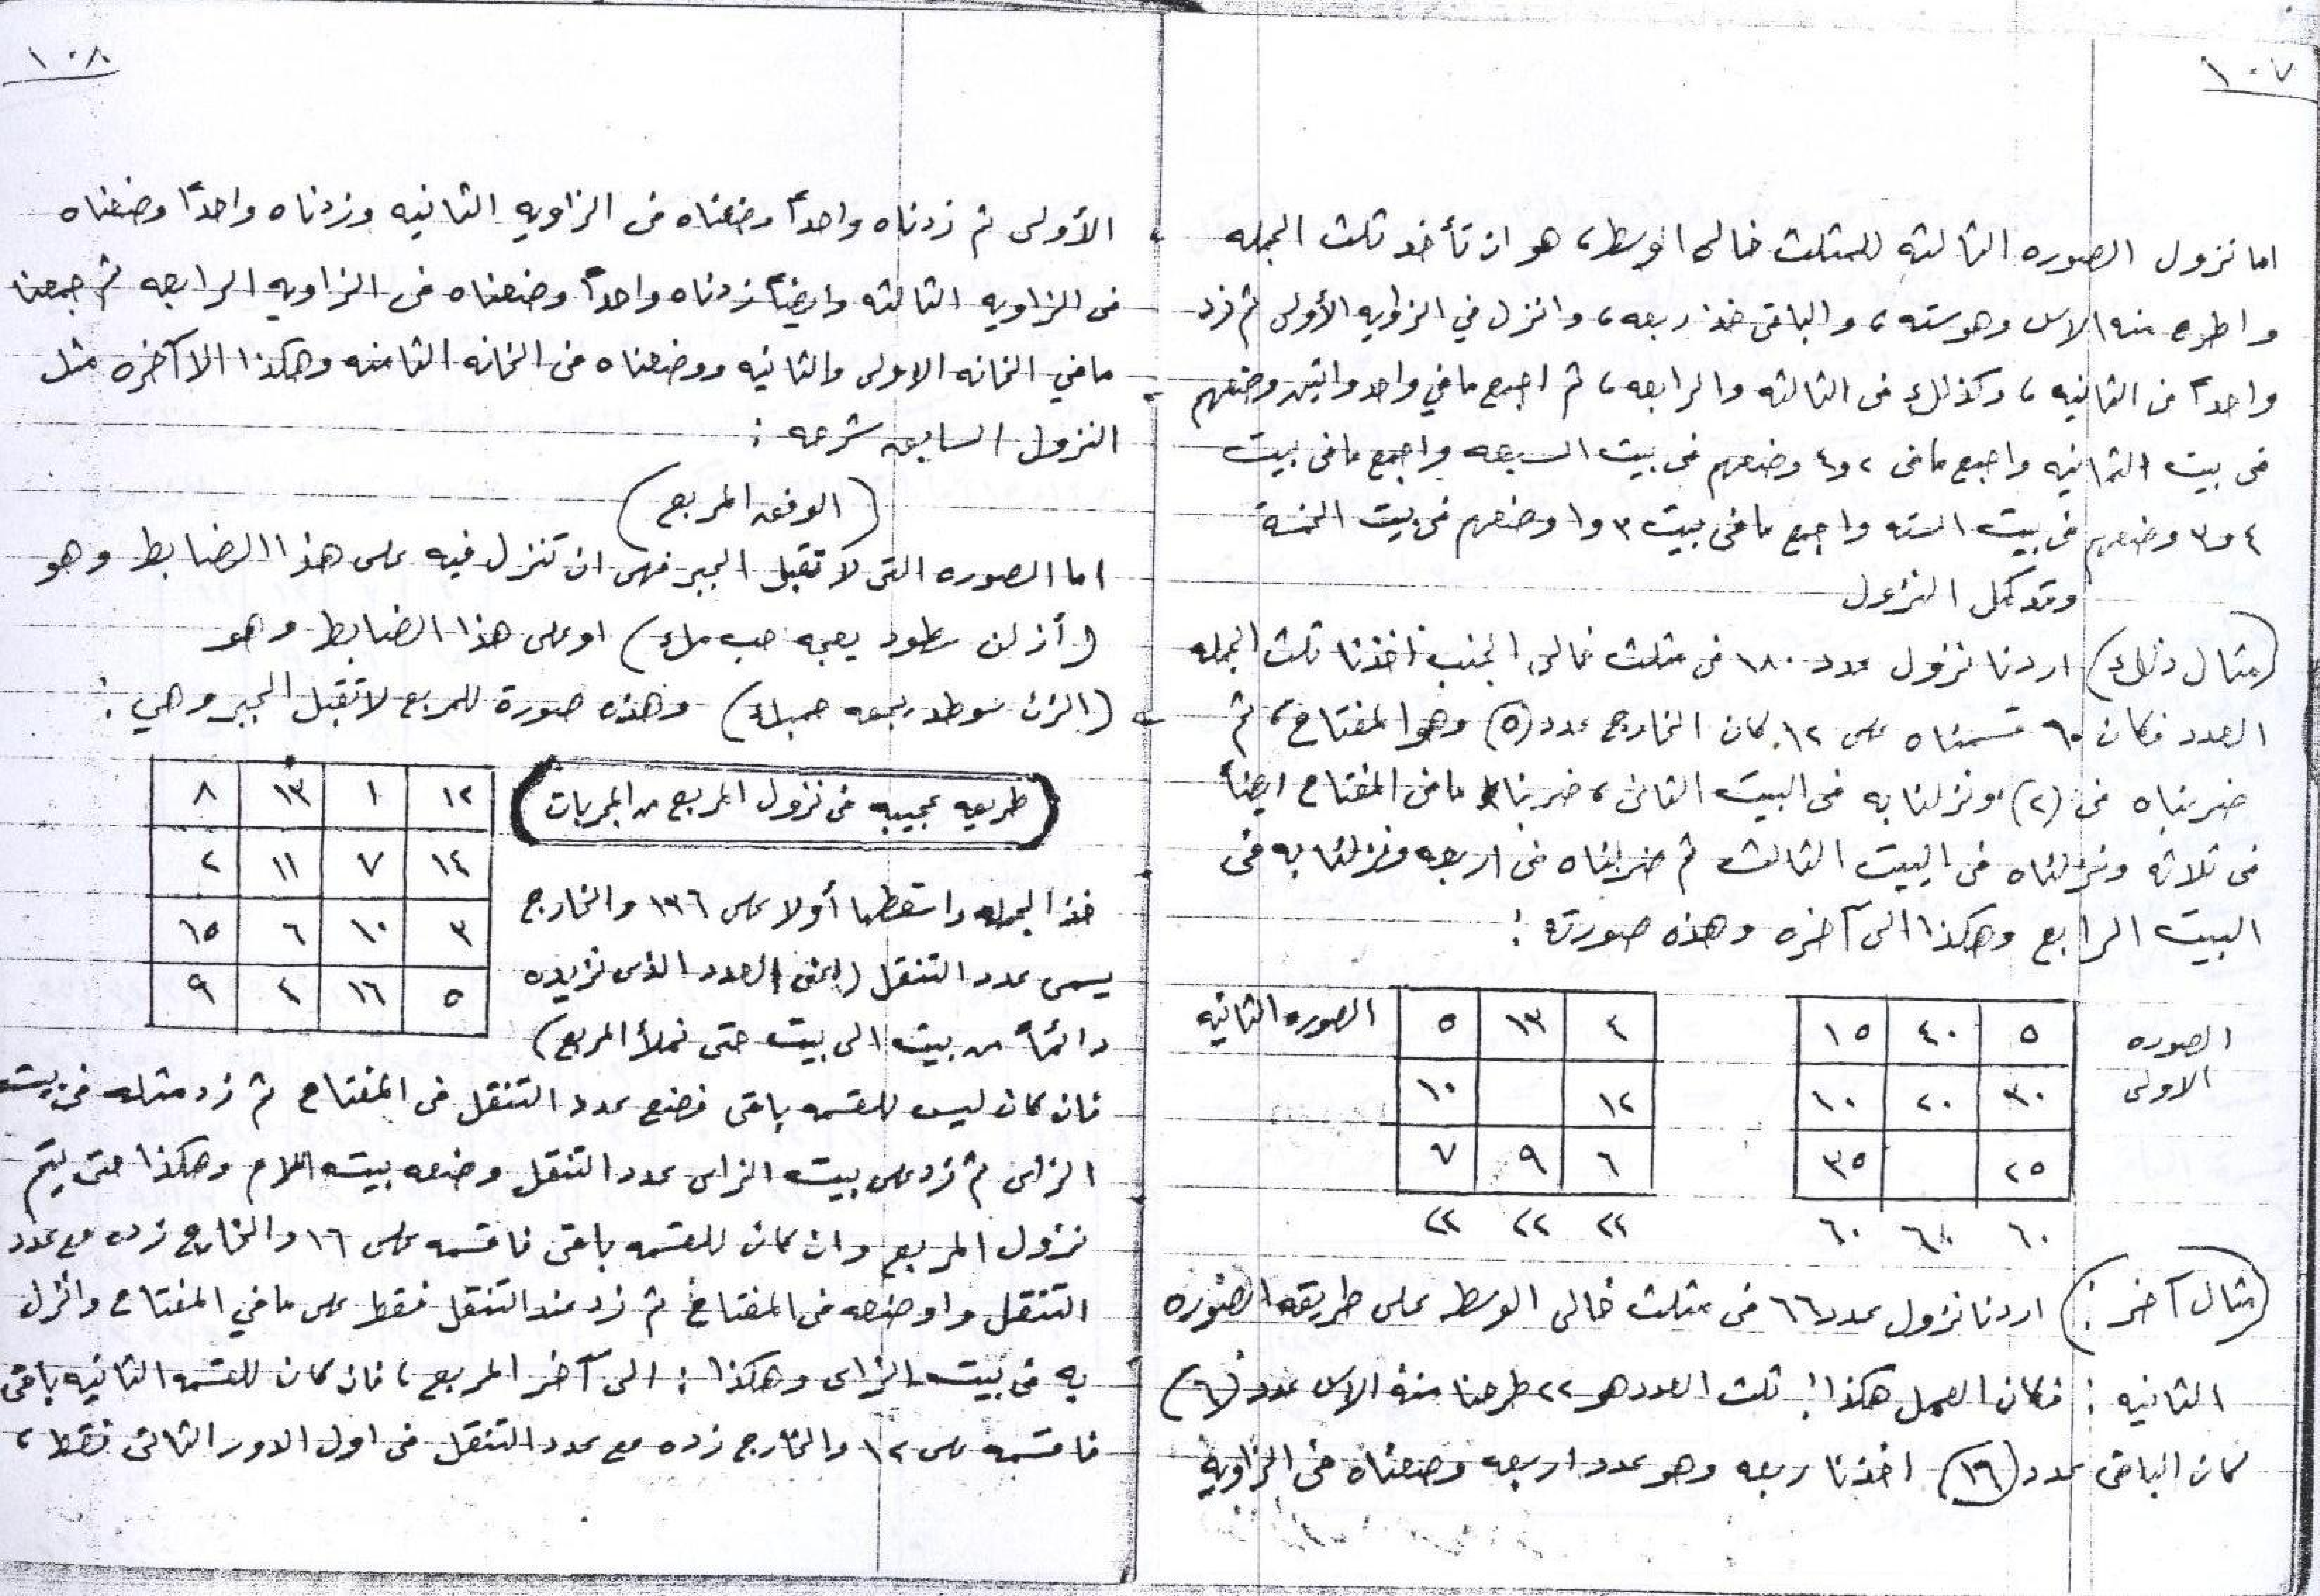 ١٠٧
اما نزول الصوره الثالثه للمثلث خالى الوسط، هو ان تأخذ ثلث الجمله
واطرح منه الاس وهو سته، والباقى خذ ربعه، وانزل في الزاويه الأولى ثم زد
واحداً فى الثانيه، وكذلك فى الثالثه والرابعه، ثم اجمع ما في واحد واثنين وضعهم
فى بيت الثمانيه واجمع ما فى ٢ و٤ وضعهم فى بيت السبعه واجمع ما فى بيت
٤ و٣ وضعهم فى بيت السته واجمع ما فى بيت ٣ و١ وضعهم فى بيت الخمسة
وقد كمل النزول
(مثال ذلك) اردنا نزول عدد ١٨٠ فى مثلث خالى الجنب أخذنا ثلث الجمله
العدد فكان ٦٠ قسمناه على ١٢ كان الخارج عدد (٥) وهو المفتاح، ثم
ضربناه فى (٢) ونزلنا به فى البيت الثانى، ضربنا ما فى المفتاح ايضاً
فى ثلاثه ونزلناه فى البيت الثالث ثم ضربناه فى اربعه ونزلنا به فى
البيت الرابع وهكذا الى آخره وهذه صورته :
الصوره الاولى
٥ ٤٠ ١٥
٣٠ ٢٠ ١٠
٢٥ ٣٥
٦٠ ٦٠ ٦٠
الصوره الثانيه
٤ ١٣ ٥
١٢ ١٠
٦ ٩ ٧
٢٢ ٢٢ ٢٢
(مثال آخر :) اردنا نزول عدد ٦٦ فى مثلث خالى الوسط على طريقه الصوره
الثانيه : فكان العمل هكذا : ثلث العدد هو ٢٢ طرحنا منه الاس عدد (٦)
كان الباقى عدد (١٦) اخذنا ربعه وهو عدد اربعه وضعناه فى الزاويه
١٠٨
الأولى ثم زدناه واحداً وضعناه فى الزاويه الثانيه وزدناه واحداً وضعناه
فى الزاويه الثالثه وايضاً زدناه واحداً وضعناه فى الزاويه الرابعه ثم جمعنا
ما في الخانه الاولى والثانيه ووضعناه فى الخانه الثامنه وهكذا الا آخره مثل
النزول السابق شرحه :
(الوفق المربع)
اما الصوره التى لا تقبل الجبر فهى ان تنزل فيه على هذا الضابط وهو
(أزلن يعجه حب ملء) او على هذا الضابط وهو
وهذه صورة للمربع لا تقبل الجبر وهي :
(طريقه عجيبه فى نزول المربع من المجربات)
١٢ ١ ١٣ ٨
١٤ ٧ ١١ ٢
٣ ١٠ ٦ ١٥
٥ ١٦ ٤ ٩
خذ الجمله واسقطها أولا على ١٣٦ والخارج
يسمى عدد التنقل (اعنى العدد الذى نزيده
دائماً من بيت الى بيت حتى نملأ المربع)
فان كان ليس للقسمه باقى فضع عدد التنقل فى المفتاح ثم زد مثله فى بيت
الزاى ثم زد على بيت الزاى عدد التنقل وضعه بيت اللام وهكذا حتى يتم
نزول المربع وان كان للقسمه باقى فاقسمه على ١٦ والخارج زده مع عدد
التنقل واوضعه فى المفتاح ثم زد عدد التنقل فقط على ما في المفتاح وانزل
به فى بيت الزاى وهكذا : الى آخر المربع، فان كان للقسمه الثانيه باقى
فاقسمه على ١٢ والخارج زده مع عدد التنقل فى اول الدور الثانى فقط،